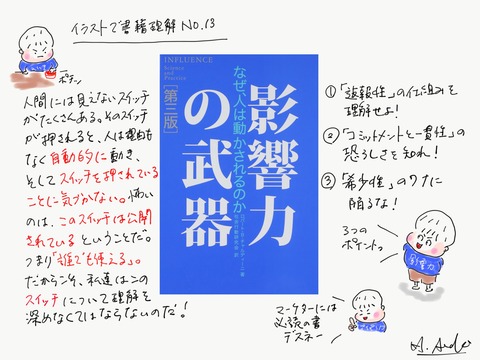 イラストで書籍理解 NO.13
ポチッ
人間には見えないスイッチ
がたくさんある。そのスイッチ
が押されると、人は理由も
なく自動的に動き、
そしてスイッチを押されている
ことに気づかない。怖い
のは、このスイッチは公開
されているということだ。
つまり「誰でも使える」。
だからこそ、私達はこの
スイッチについて理解を
深めなくてはならないのだ!
INFLUENCE
Science
and
Practice
影響力の武器
なぜ、人は動かされるのか
[第三版]
① 「返報性」の仕組みを
理解せよ!
② 「コミットメントと一貫性」の
恐ろしさを知れ!
③ 「希少性」のワナに
陥るな!
3つの
ポイントっ
影響力
マーケターには
必読の書
デスネー